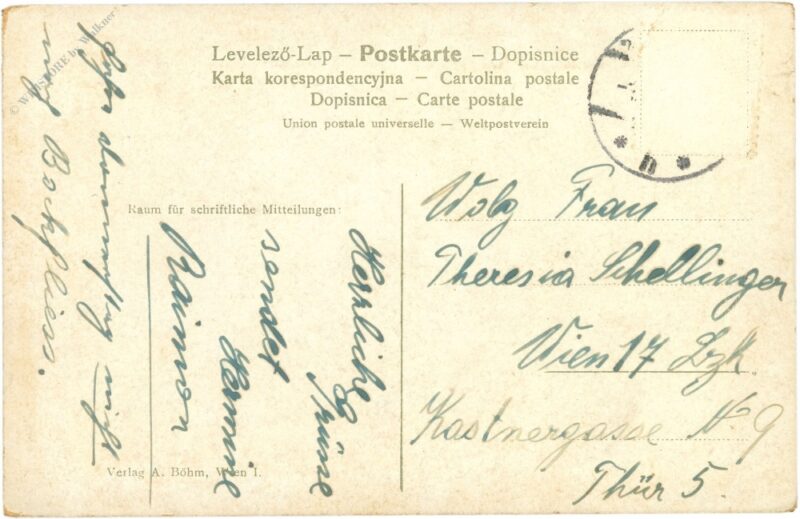 Levelező-Lap – Postkarte – Dopisnice
Karta korespondencyjna – Cartolina postale
Dopisnica – Carte postale
Union postale universelle – Weltpostverein
Raum für schriftliche Mitteilungen:
Wolg Frau
Theresia Schellinger
Wien 17 Bzk.
Kastnergasse No 9
Thür 5.
Herzliche
Grüsse
sendet
Hermine
nicht
nach Bockfliess.
Verlag A. Böhm, Wien I.